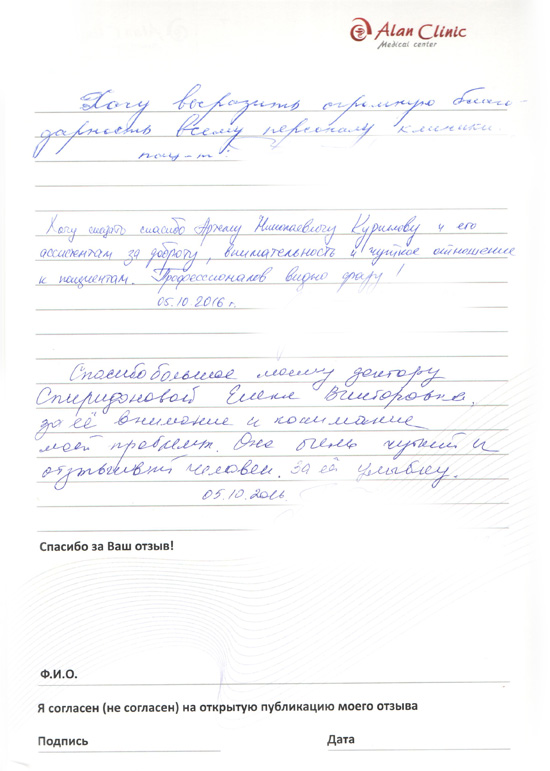 Alan Clinic
Medical center
Хочу выразить огромную благо-
дарность всему персоналу клиники.
Хочу сказать спасибо Артему Николаевичу Куринову и его
ассистентам за доброту, внимательность и чуткое отношение
к пациентам. Профессионалов видно сразу!
05.10.2016 г.
Спасибо большое моему доктору
Спиридоновой Елене Викторовне,
за её внимание и понимание
моей проблемы. Она очень чуткий и
отзывчивый человек. За её улыбку.
05.10.2016
Спасибо за Ваш отзыв!
Ф.И.О.
Я согласен (не согласен) на открытую публикацию моего отзыва
Подпись Дата